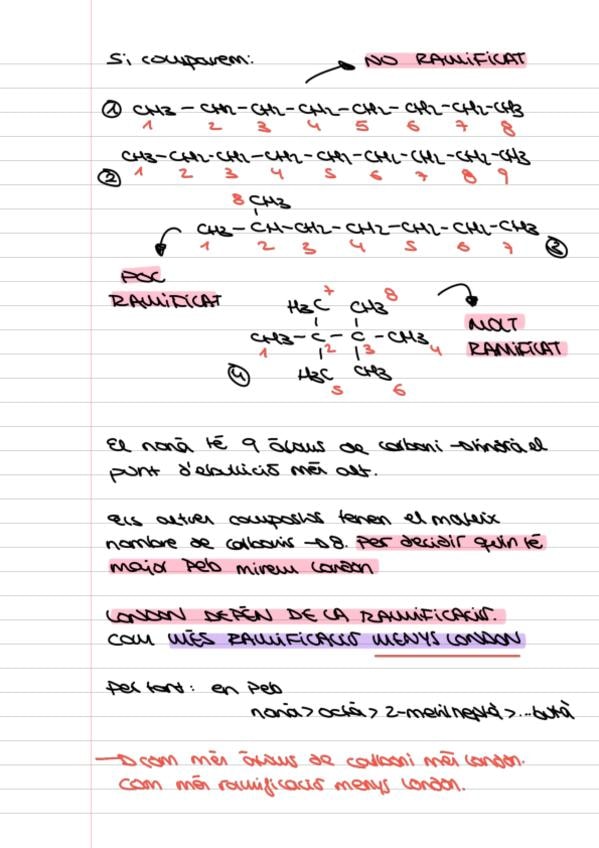 Si comparem:
NO RAMIFICAT
① CH3 - CH2 - CH2 - CH2 - CH2 - CH2 - CH2 - CH3
1 2 3 4 5 6 7 8
CH3 - CH2 - CH2 - CH2 - CH2 - CH2 - CH2 - CH2 - CH3
② 1 2 3 4 5 6 7 8 9
8 CH3
CH3 - CH - CH2 - CH2 - CH2 - CH2 - CH3
1 2 3 4 5 6 7 ③
POC
RAMIFICAT
7 8
H3C CH3
MOLT
RAMIFICAT
CH3 - C - C - CH3
1 2 3 4
④ H3C CH3
5 6
El nonà té 9 àtoms de carboni → tindrà el
punt d'ebullició més alt.
Els altres compostos tenen el mateix
nombre de carbonis → 8. Per decidir quin té
major Peb mirem London
LONDON DEPÈN DE LA RAMIFICACIÓ.
COM MÉS RAMIFICACIÓ MENYS LONDON
Per tant: en Peb
nonà > octà > 2-metilheptà > ... butà
→ com més àtoms de carboni més London.
Com més ramificació menys London.